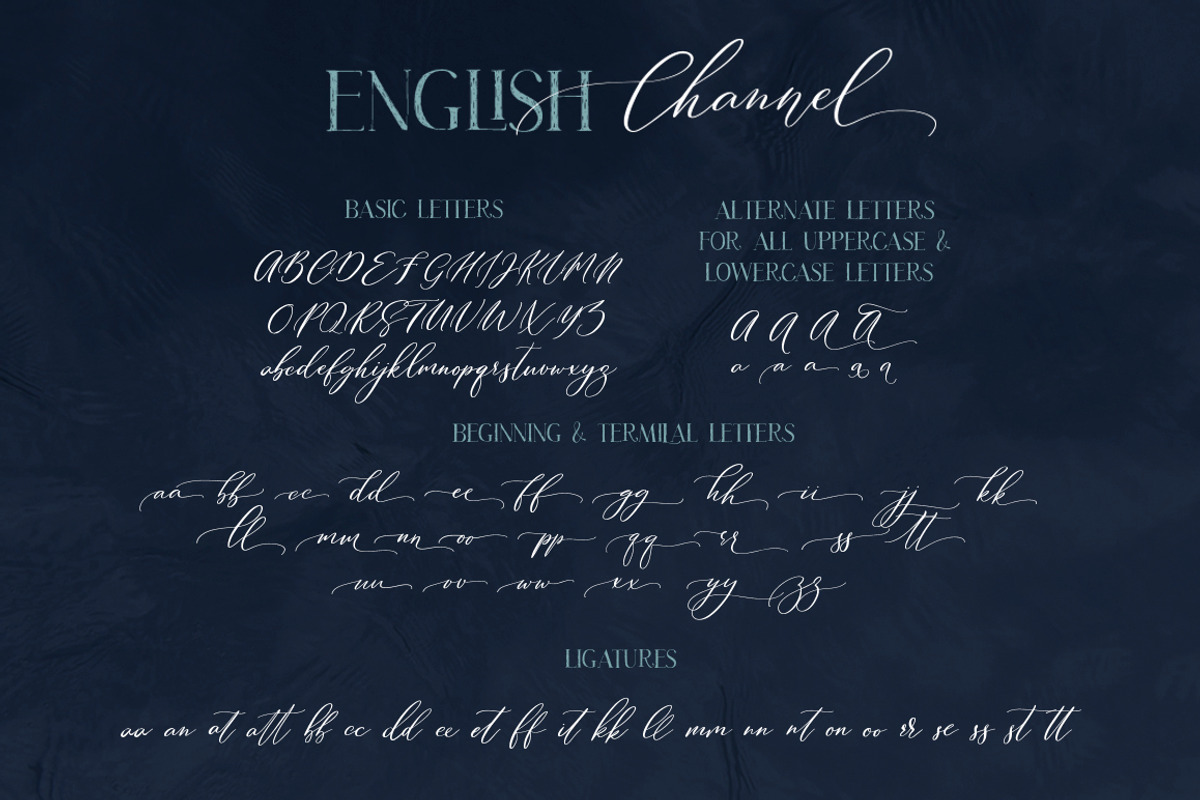 ENGLISH Channel
BASIC LETTERS
ABCDEFGHIJKLMN
OPQRSTUVWXYZ
abcdefghijklmnopqrstuvwxyz
ALTERNATE LETTERS
FOR ALL UPPERCASE &
LOWERCASE LETTERS
A A A A
a a a a a
BEGINNING & TERMILAL LETTERS
aa bb cc dd ee ff gg hh ii jj kk
ll mm nn oo pp qq rr ss tt
uu vv ww xx yy zz
LIGATURES
aa an at att bb cc dd ee et ff it kk ll mm nn nt on oo rr se ss st tt